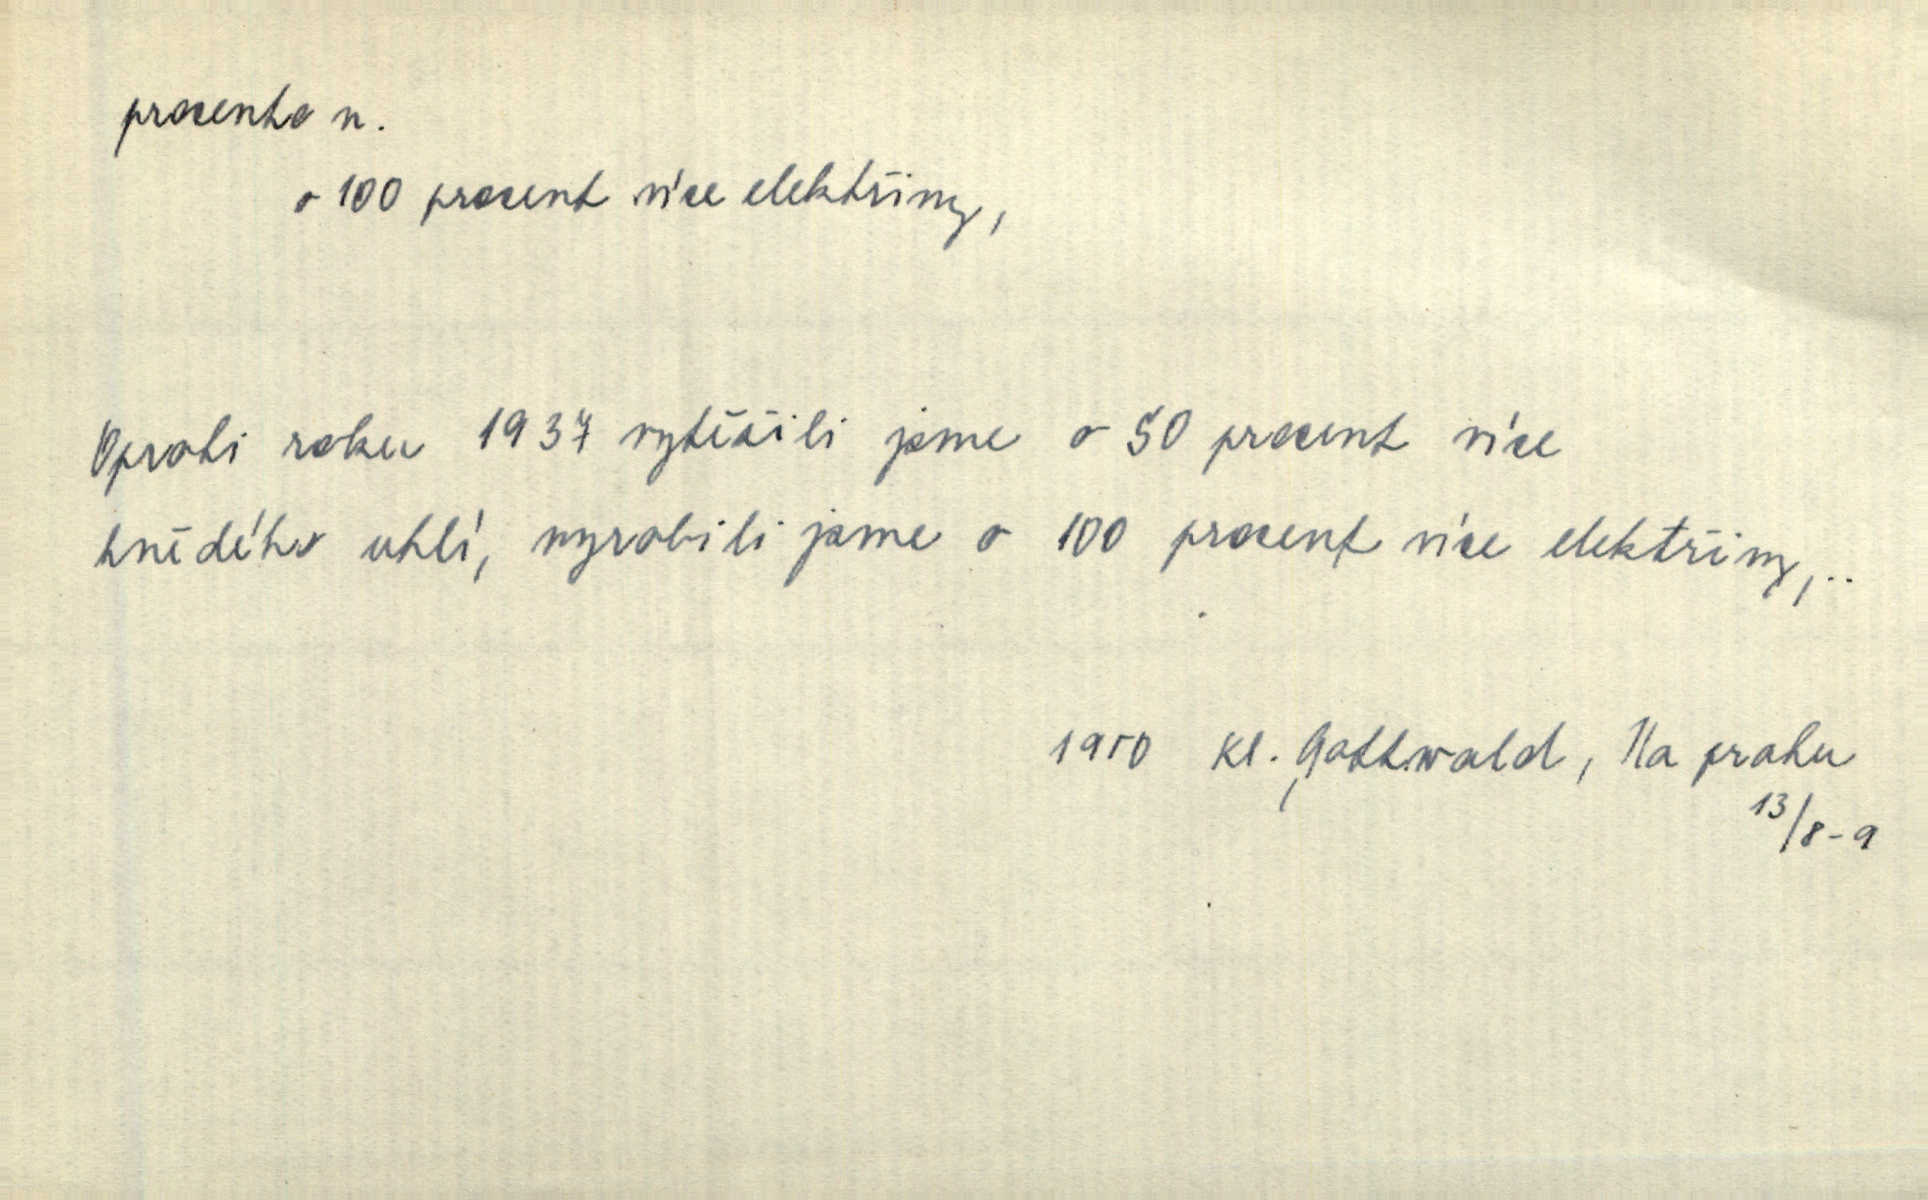 procento n.
o 100 procent více elektřiny,
Oproti roku 1937 vytěžili jsme o 50 procent více
hnědého uhlí, vyrobili jsme o 100 procent více elektřiny,..
1950 Kl. Gottwald, Na prahu
13/8-9